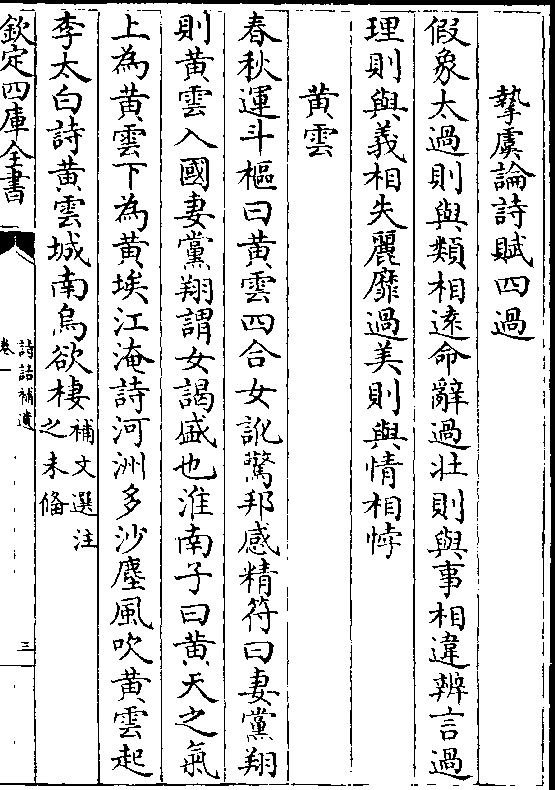 摯虞論詩賦四過
假象太過則與類相逺命辭過壯則與事相違辨言過
理則與義相失麗靡過美則與情相悖
黄雲
春秋運斗樞曰黄雲四合女訛驚邦感精符曰妻黨翔
則黄雲入國妻黨翔謂女謁盛也淮南子曰黄天之氣
上為黄雲下為黄埃江淹詩河洲多沙塵風吹黄雲起
李太白詩黄雲城南烏欲棲補文選注之未偹
欽定四庫全書
詩話補遺
卷一
三